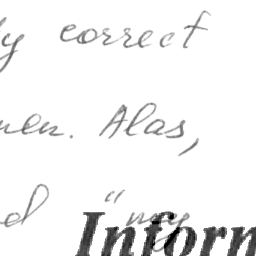 y correct
men. Alas,
d "my
Inform